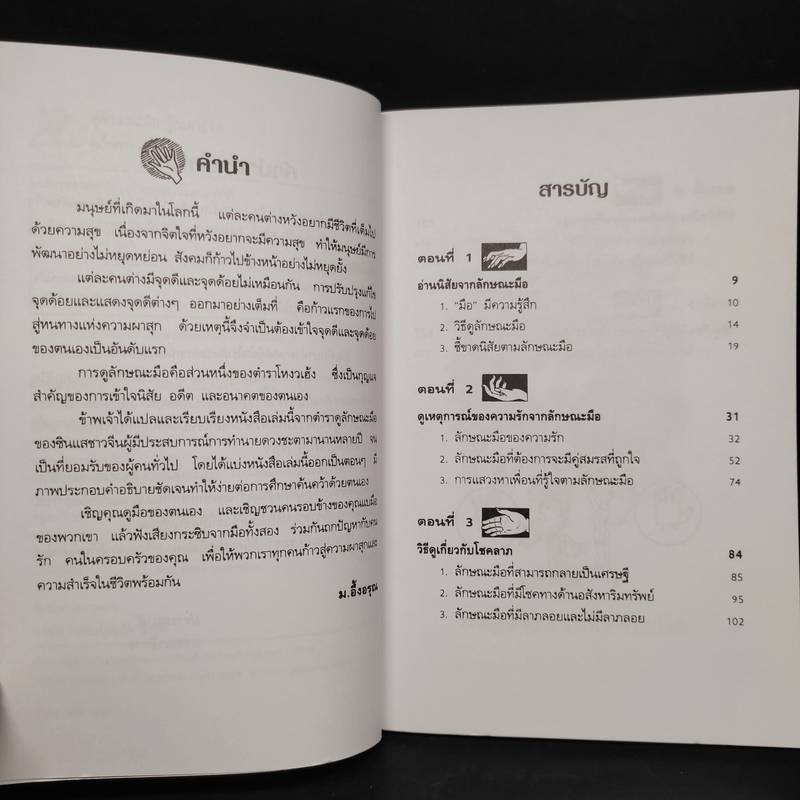 คำนำ
มนุษย์ที่เกิดมาในโลกนี้ แต่ละคนต่างหวังอยากมีชีวิตที่เต็มไป
ด้วยความสุข เนื่องจากจิตใจที่หวังอยากจะมีความสุข ทำให้มนุษย์มีการ
พัฒนาอย่างไม่หยุดหย่อน สังคมก็ก้าวไปข้างหน้าอย่างไม่หยุดยั้ง
แต่ละคนต่างมีจุดดีและจุดด้อยไม่เหมือนกัน การปรับปรุงแก้ไข
จุดด้อยและแสดงจุดดีต่างๆ ออกมาอย่างเต็มที่ คือก้าวแรกของการไป
สู่หนทางแห่งความผาสุก ด้วยเหตุนี้จึงจำเป็นต้องเข้าใจจุดดีและจุดด้อย
ของตนเองเป็นอันดับแรก
การดูลักษณะมือคือส่วนหนึ่งของตำราโหงวเฮ้ง ซึ่งเป็นกุญแจ
สำคัญของการเข้าใจนิสัย อดีต และอนาคตของตนเอง
ข้าพเจ้าได้แปลและเรียบเรียงหนังสือเล่มนี้จากตำราดูลักษณะมือ
ของซินแสชาวจีนผู้มีประสบการณ์การทำนายดวงชะตามานานหลายปี จน
เป็นที่ยอมรับของผู้คนทั่วไป โดยได้แบ่งหนังสือเล่มนี้ออกเป็นตอนๆ มี
ภาพประกอบคำอธิบายชัดเจนทำให้ง่ายต่อการศึกษาค้นคว้าด้วยตนเอง
เชิญคุณดูมือของตนเอง และเชิญชวนคนรอบข้างของคุณแบมือ
ของพวกเขา แล้วฟังเสียงกระซิบจากมือทั้งสอง ร่วมกันถกปัญหากับคน
รัก คนในครอบครัวของคุณ เพื่อให้พวกเราทุกคนก้าวสู่ความผาสุกและ
ความสำเร็จในชีวิตพร้อมกัน
ม.อึ้งอรุณ
สารบัญ
ตอนที่ 1
อ่านนิสัยจากลักษณะมือ 9
1. "มือ" มีความรู้สึก 10
2. วิธีดูลักษณะมือ 14
3. ชี้ขาดนิสัยตามลักษณะมือ 19
ตอนที่ 2
ดูเหตุการณ์ของความรักจากลักษณะมือ 31
1. ลักษณะมือของความรัก 32
2. ลักษณะมือที่ต้องการจะมีคู่สมรสที่ถูกใจ 52
3. การแสวงหาเพื่อนที่รู้ใจตามลักษณะมือ 74
ตอนที่ 3
วิธีดูเกี่ยวกับโชคลาภ 84
1. ลักษณะมือที่สามารถกลายเป็นเศรษฐี 85
2. ลักษณะมือที่มีโชคทางด้านอสังหาริมทรัพย์ 95
3. ลักษณะมือที่มีลาภลอยและไม่มีลาภลอย 102